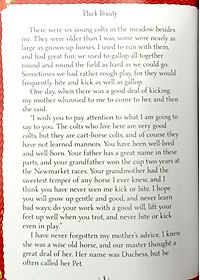 Black Beauty
There were six young colts in the meadow beside
me. They were older than I was; some were nearly as
large as grown-up horses. I used to run with them,
and had great fun; we used to gallop all together
round and round the field as hard as we could go.
Sometimes we had rather rough play, for they would
frequently bite and kick as well as gallop.
One day, when there was a good deal of kicking,
my mother whinnied to me to come to her, and then
she said:
"I wish you to pay attention to what I am going
to say to you. The colts who live here are very good
colts, but they are cart-horse colts, and of course they
have not learned manners. You have been well-bred
and well-born. Your father has a great name in these
parts, and your grandfather won the cup two years at
the Newmarket races. Your grandmother had the
sweetest temper of any horse I ever knew, and I
think you have never seen me kick or bite. I hope
you will grow up gentle and good, and never learn
bad ways; do your work with a good will, lift your
feet up well when you trot, and never bite or kick
even in play."
I have never forgotten my mother's advice. I knew
she was a wise old horse, and our master thought a
great deal of her. Her name was Duchess, but he
often called her Pet.